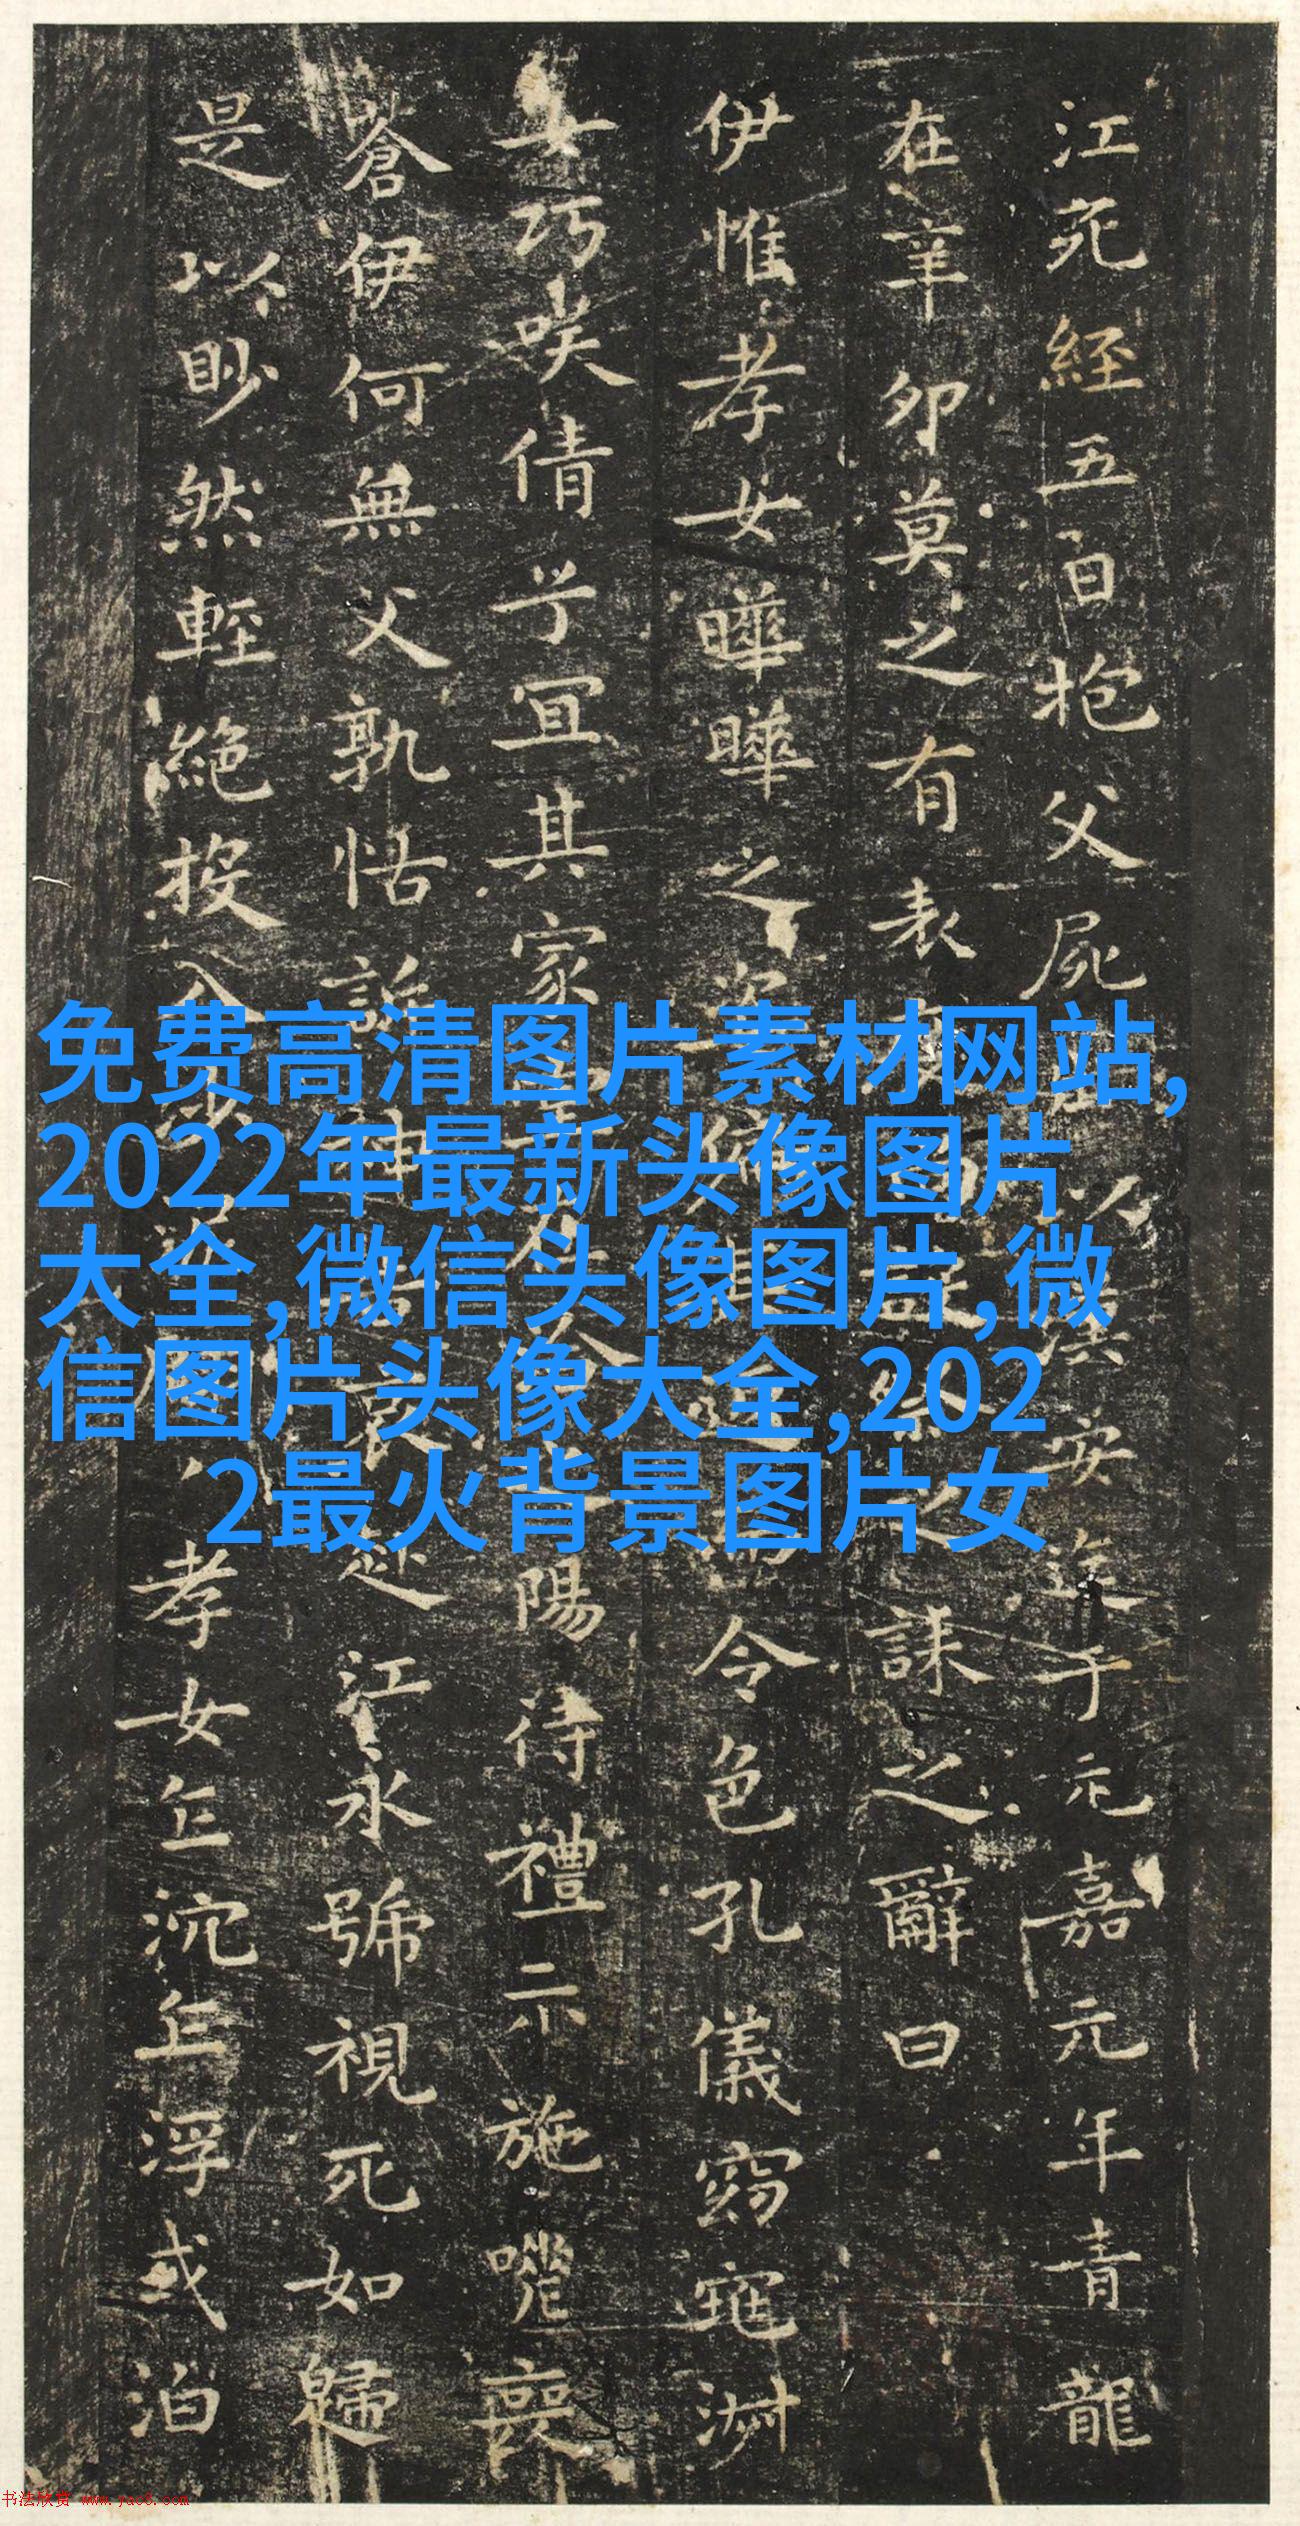 江死經五日抱父屍以安迄于元嘉元年青龍
在辛卯莫之有表祭之誄之辭曰
伊惟孝女曄曄之姿偏其令色孔儀窈窕淑
女巧咲倩兮宜其家陽待禮未施嗟喪
蒼伊何無父孰怙訴神告哀赴江永號視死如歸
是以眇然輕絕投入沙孝女乍沉乍浮或泊
免费高清图片素材网站,
2022年最新头像图片
大全,微信头像图片,微
信图片头像大全,202
2最火背景图片女
书法欣赏 www.yac8.com